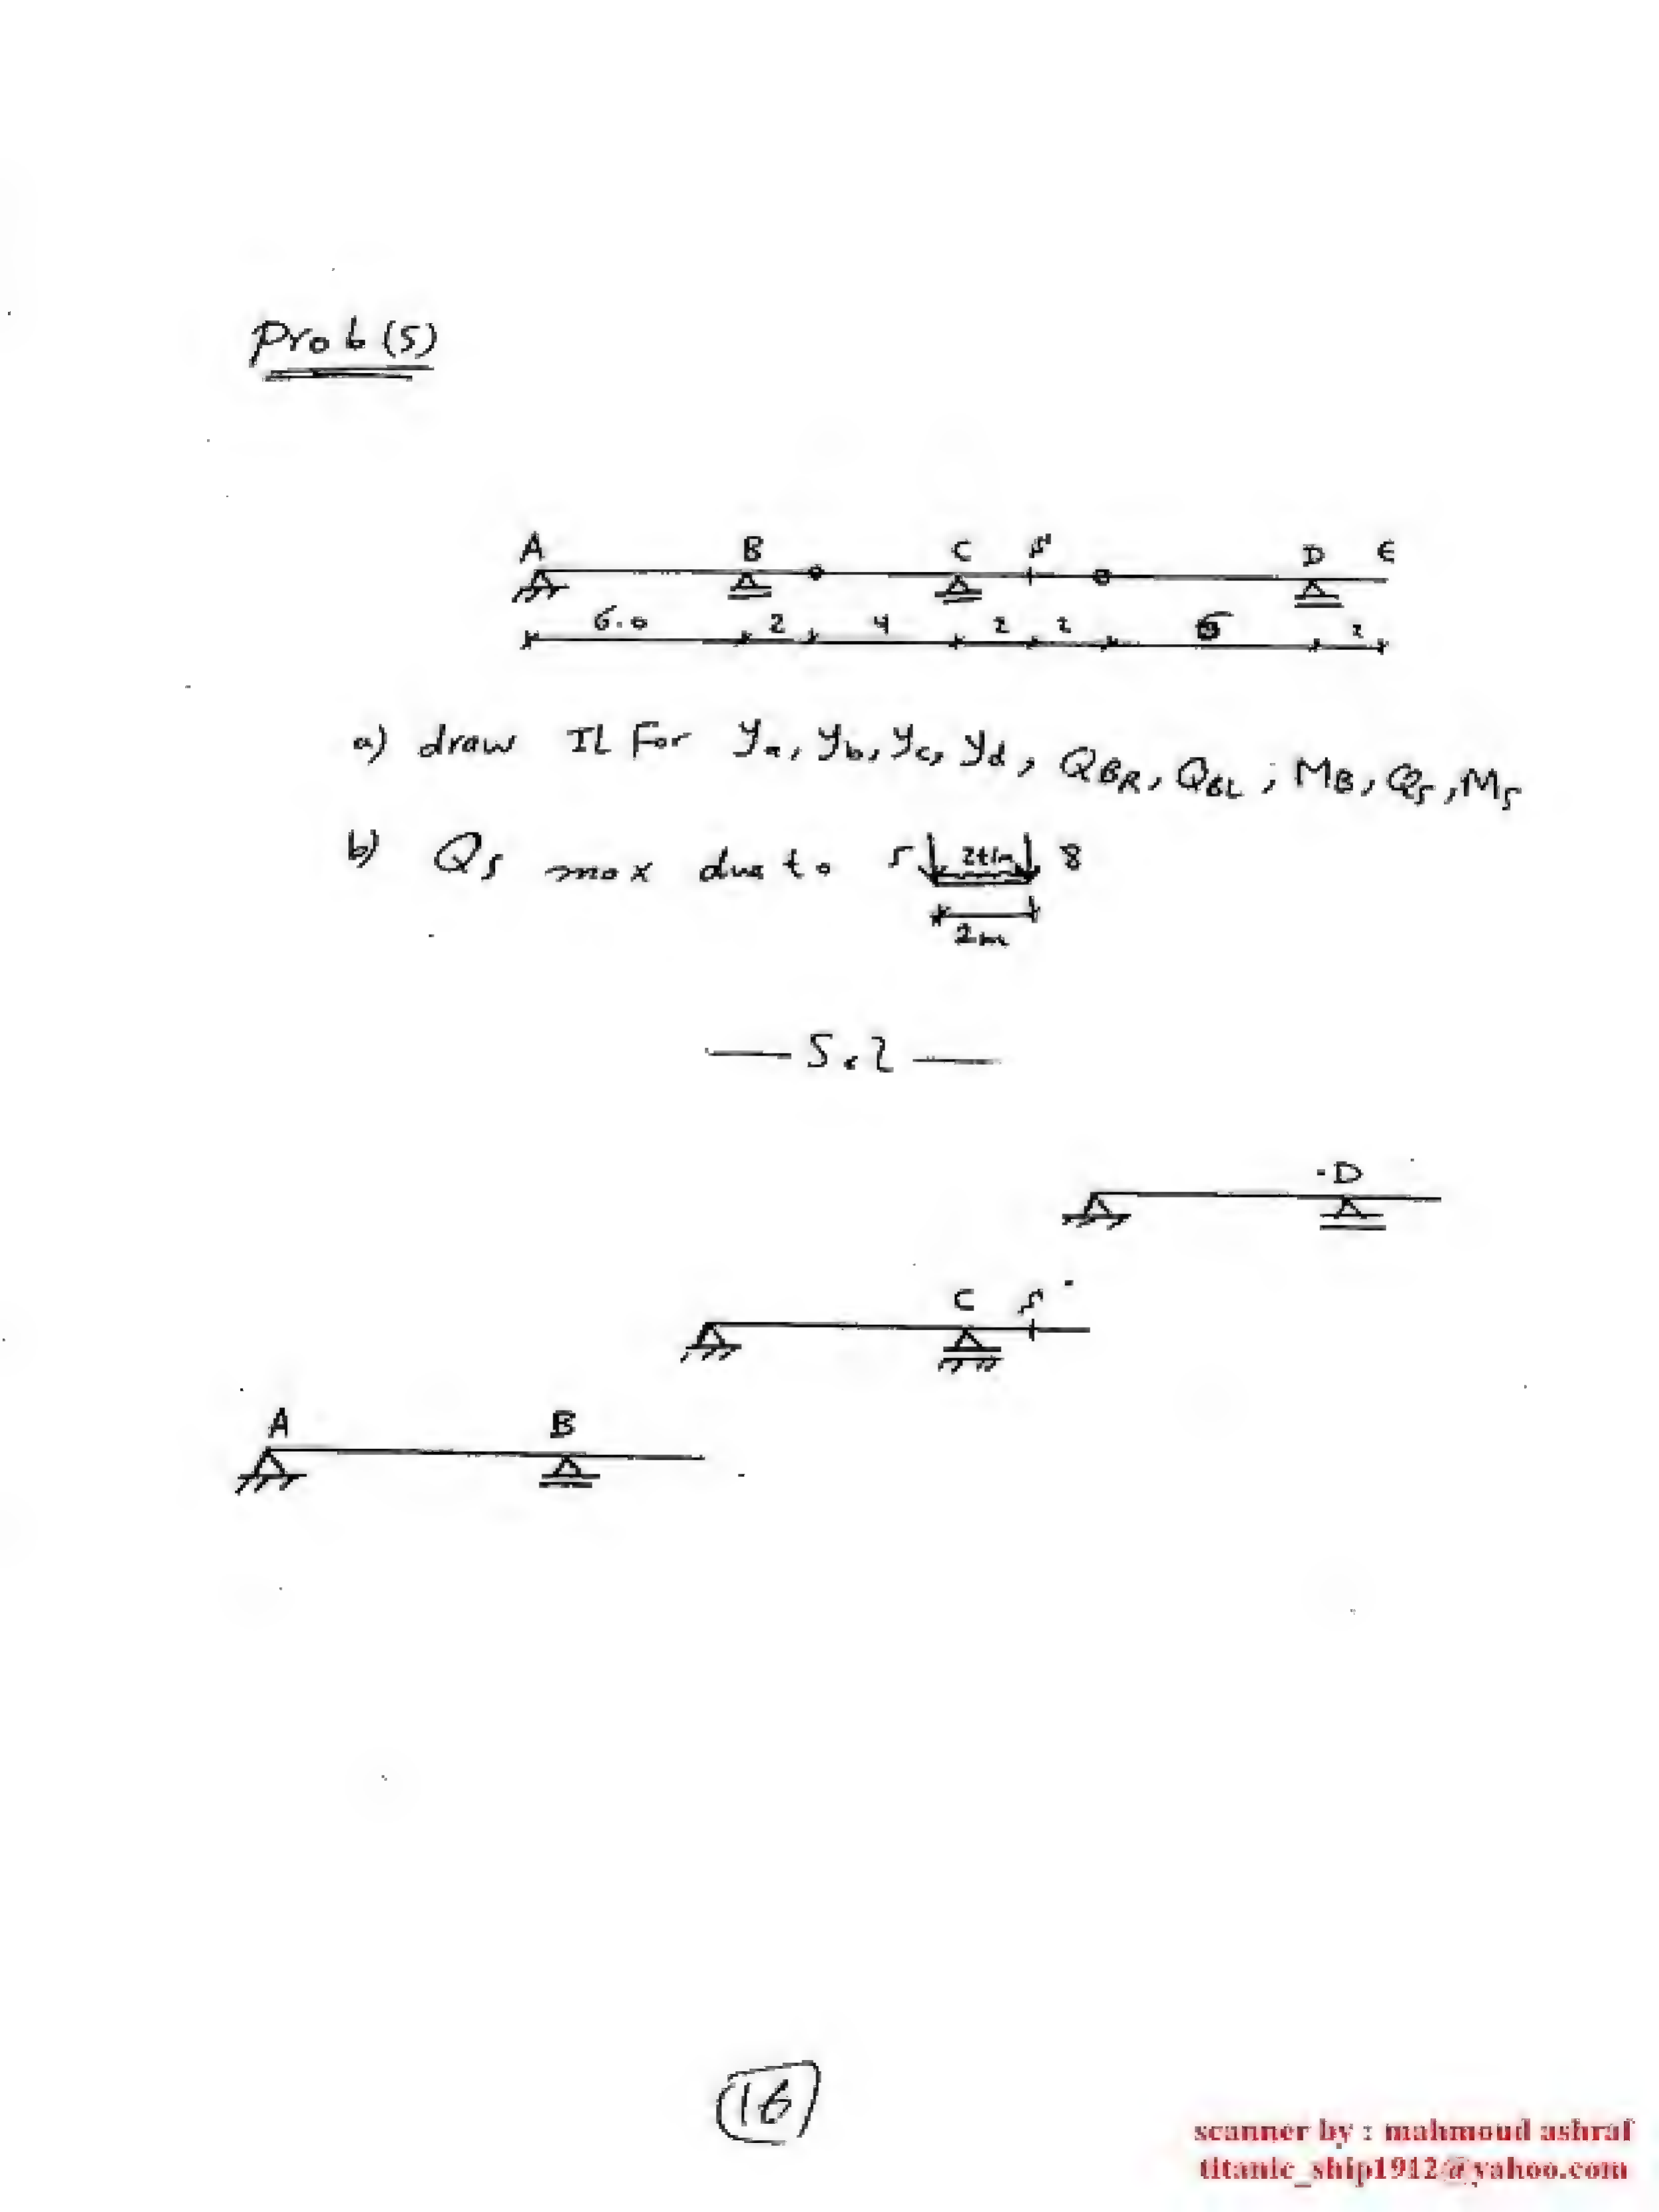 Prob (5)
A B C S D E
6.0 2 4 2 2 6 2
a) draw IL For Ya, Yb, Yc, Yd, QBR, QBL, MB, QS, MS
b) QS max due to 5 2t/m 8
2m
— Sol —
D
C S
A B
16
scanner by : mahmoud ashraf
titanic_ship1912@yahoo.com